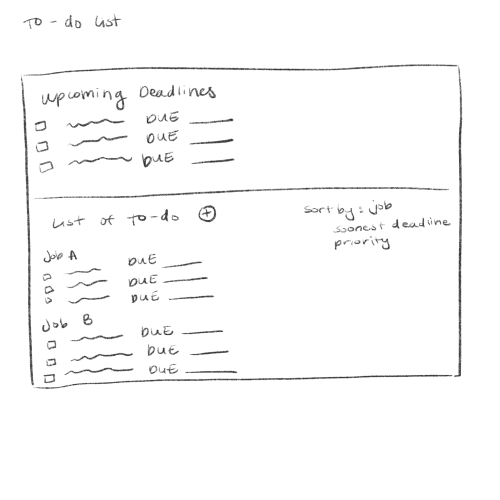 To-do list
Upcoming Deadlines
DUE
DUE
DUE
List of To-do +
sort by: job
soonest deadline
priority
Job A
DUE
DUE
DUE
Job B
DUE
DUE
DUE